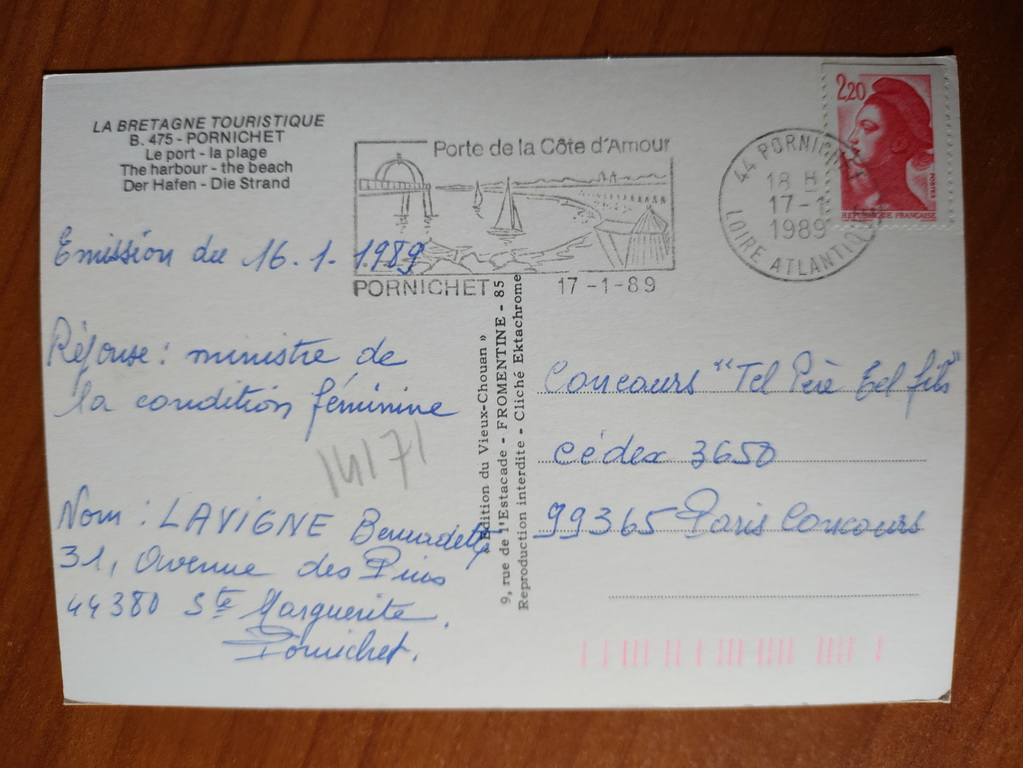 LA BRETAGNE TOURISTIQUE
B. 475 - PORNICHET
Le port - la plage
The harbour - the beach
Der Hafen - Die Strand
Porte de la Côte d'Amour
PORNICHET 17-1-89
44 PORNICHET
18 H
17-1
1989
LOIRE ATLANTIQUE
2,20
POSTES
REPUBLIQUE FRANÇAISE
Emission du 16.1.1989
Réponse : ministre de
la condition féminine
14171
Nom : LAVIGNE Bernadette
31, Avenue des Pins
44380 Ste Marguerite.
Pornichet.
Edition du Vieux-Chouan »
9, rue de l'Estacade - FROMENTINE - 85
Reproduction interdite - Cliché Ektachrome
Concours "Tel Père tel fils"
Cédex 3650
99365 Paris Concours